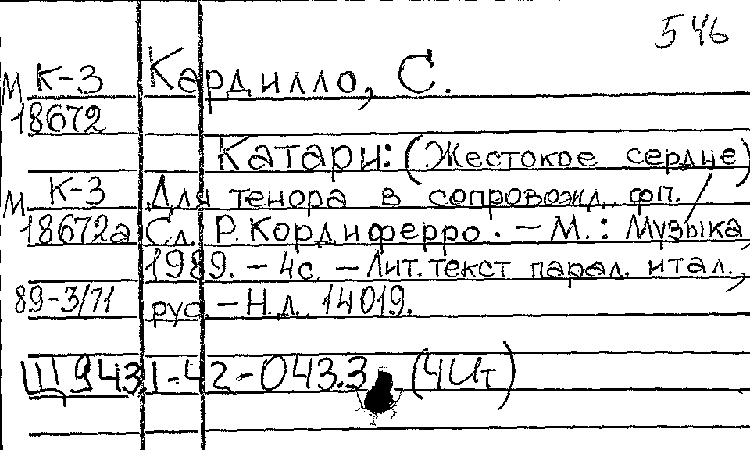 546
М К-3 Кардилло, С.
18672
Катари: (Жестокое сердце)
М К-3 Для тенора в сопровожд. фп. /
18672а Сл. Р. Кордиферро. - М.: Музыка,
1989. - 4с. - Лит. текст парал. итал.,
89-3/71 рус. - Н.д. 14019.
Щ9431-42-043.3 (4Ит)